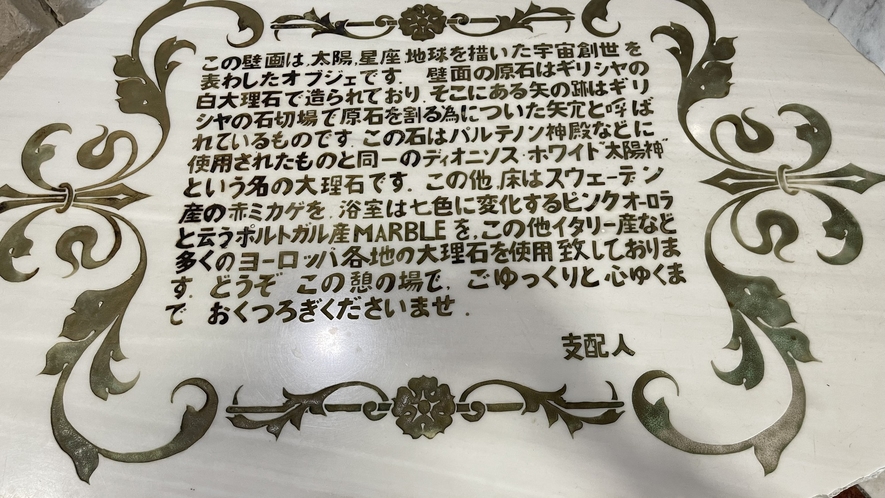 この壁画は、太陽、星座、地球を描いた宇宙創世を
表わしたオブジェです。 壁面の原石はギリシヤの
白大理石で造られており、そこにある矢の跡はギリ
シヤの石切場で原石を割る為についた矢穴と呼ば
れているものです。この石はパルテノン神殿などに
使用されたものと同一のディオニソス・ホワイト"太陽神"
という名の大理石です。 この他、床はスウェーデン
産の赤ミカゲを、浴室は七色に変化するピンクオーロラ
と云うポルトガル産MARBLEを、この他イタリー産など
多くのヨーロッパ各地の大理石を使用致しておりま
す。 どうぞ この憩の場で、 ごゆっくりと心ゆくま
で おくつろぎくださいませ。
支配人